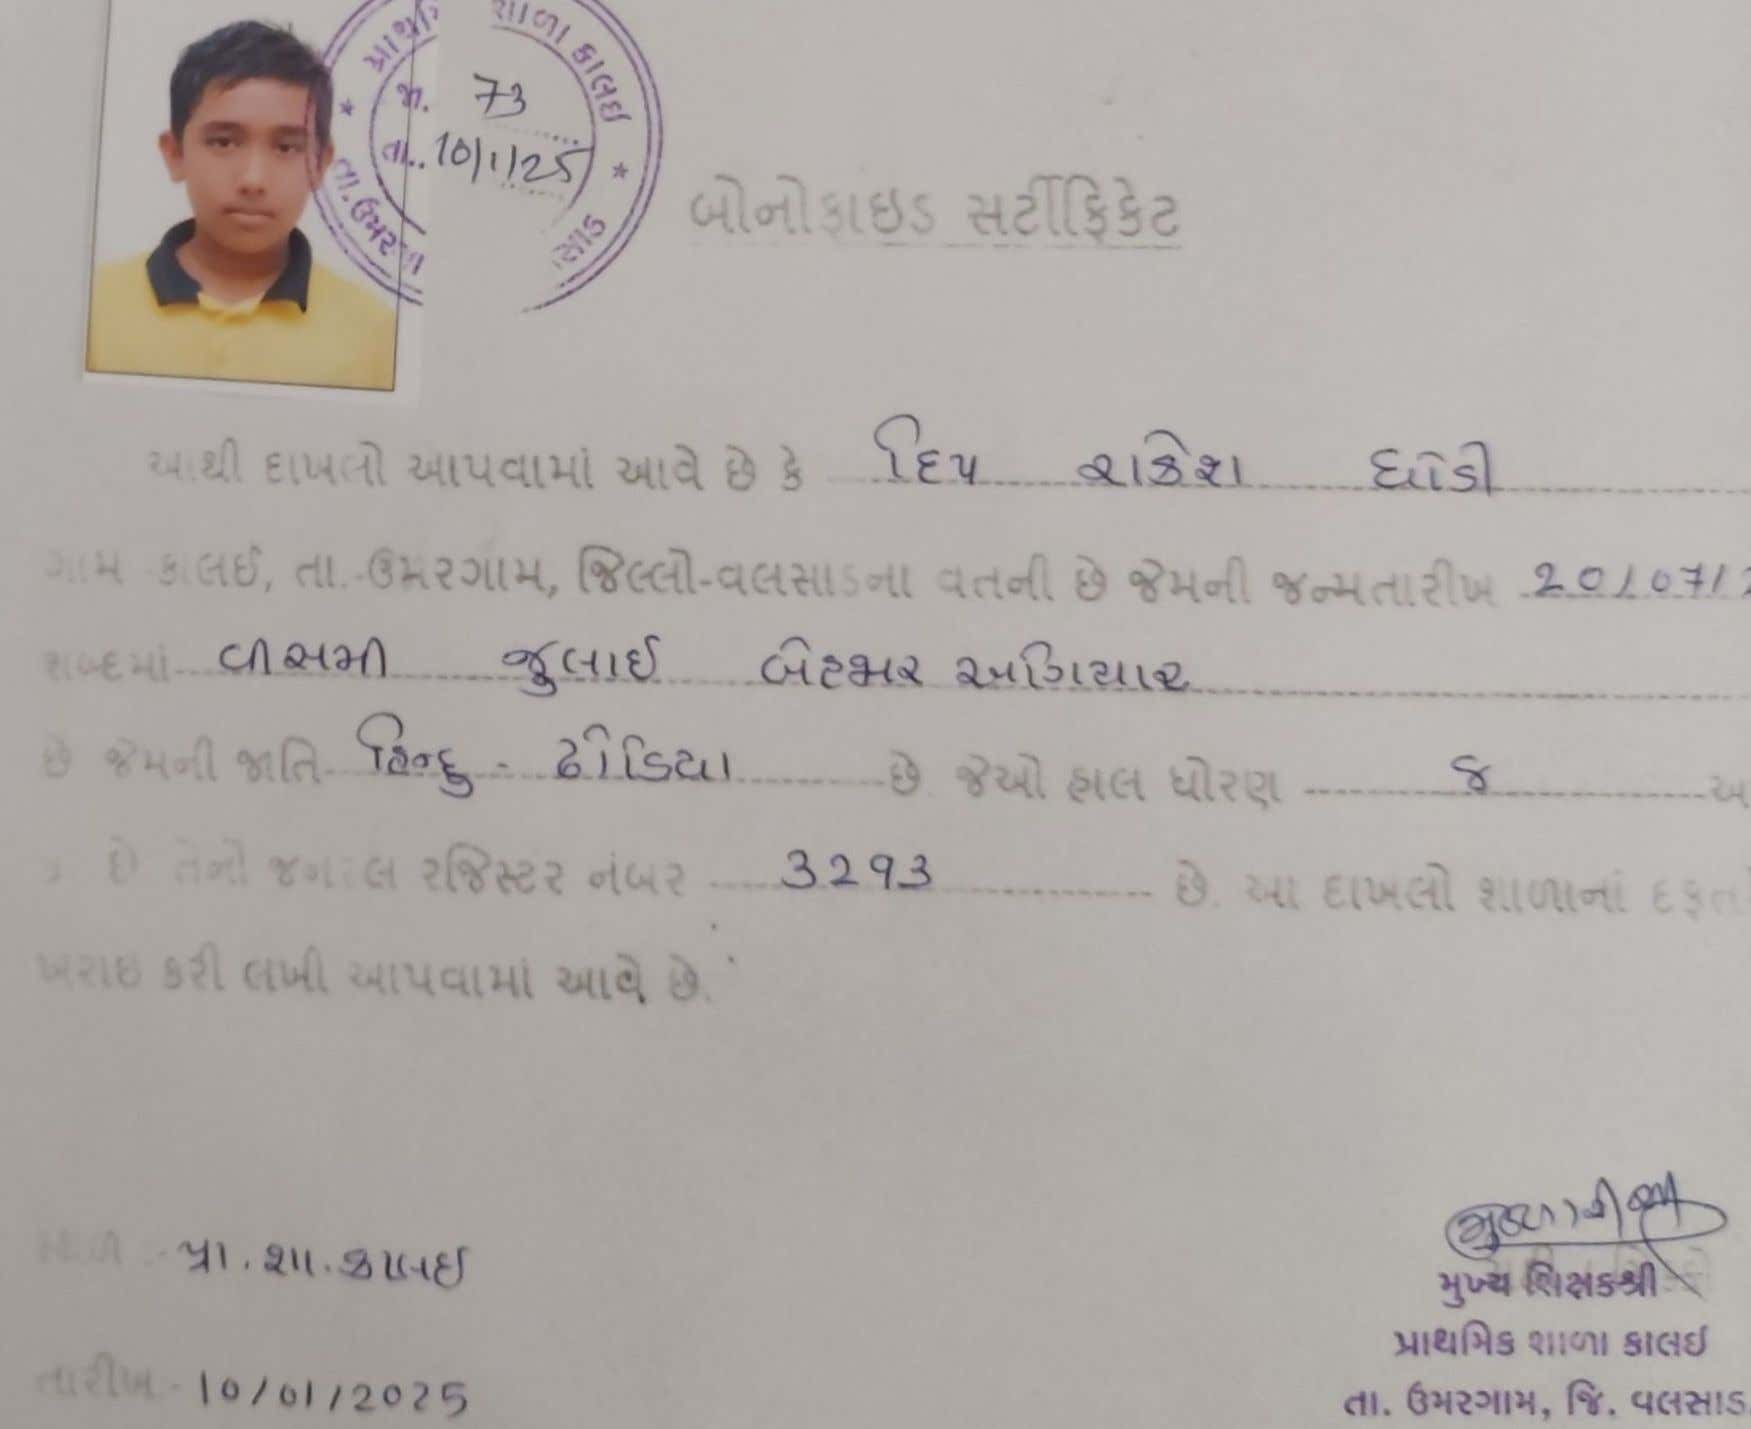 પ્રાથમિ શાળા કાલઇ
જા. 73
તા.. 10/1/25
તા. ઉમરગા સાડ
બોનોફાઇડ સર્ટીફિકેટ
આથી દાખલો આપવામાં આવે છે કે દિપ રાકેશ ધોડી
ગામ કાલઈ, તા.-ઉમરગામ, જિલ્લો-વલસાડના વતની છે જેમની જન્મતારીખ 20/07/2
શબ્દમાં વીસમી જુલાઈ બેહજાર અગિયાર
છે જેમની જાતિ હિન્દુ - ઢોડિયા છે જેઓ હાલ ધોરણ ૪ અ
છે તેનો જનરલ રજિસ્ટર નંબર 3293 છે. આ દાખલો શાળાનાં દફત
ખરાઇ કરી લખી આપવામાં આવે છે.
સ્થળ :- પ્રા. શા. કાલઈ
તારીખ:- 10/01/2025
મુખ્ય શિક્ષકશ્રી
પ્રાથમિક શાળા કાલઇ
તા. ઉમરગામ, જિ. વલસાડ